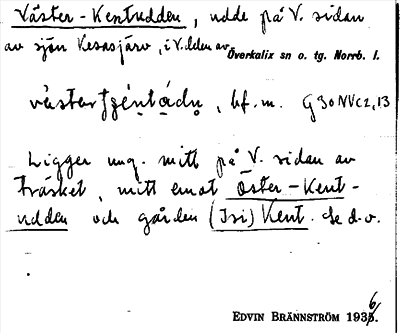 Väster-Kentudden, udde på V. sidan
av sjön Kesasjärv, i V.delen av Överkalix sn o. tg. Norrb. l.
bf. m. G30NVc2,13
Ligger ung. mitt på V. sidan av
träsket, mitt emot Öster-Kent-
udden och gården (Isi) Kent. Se d.o.
EDVIN BRÄNNSTRÖM 1936.